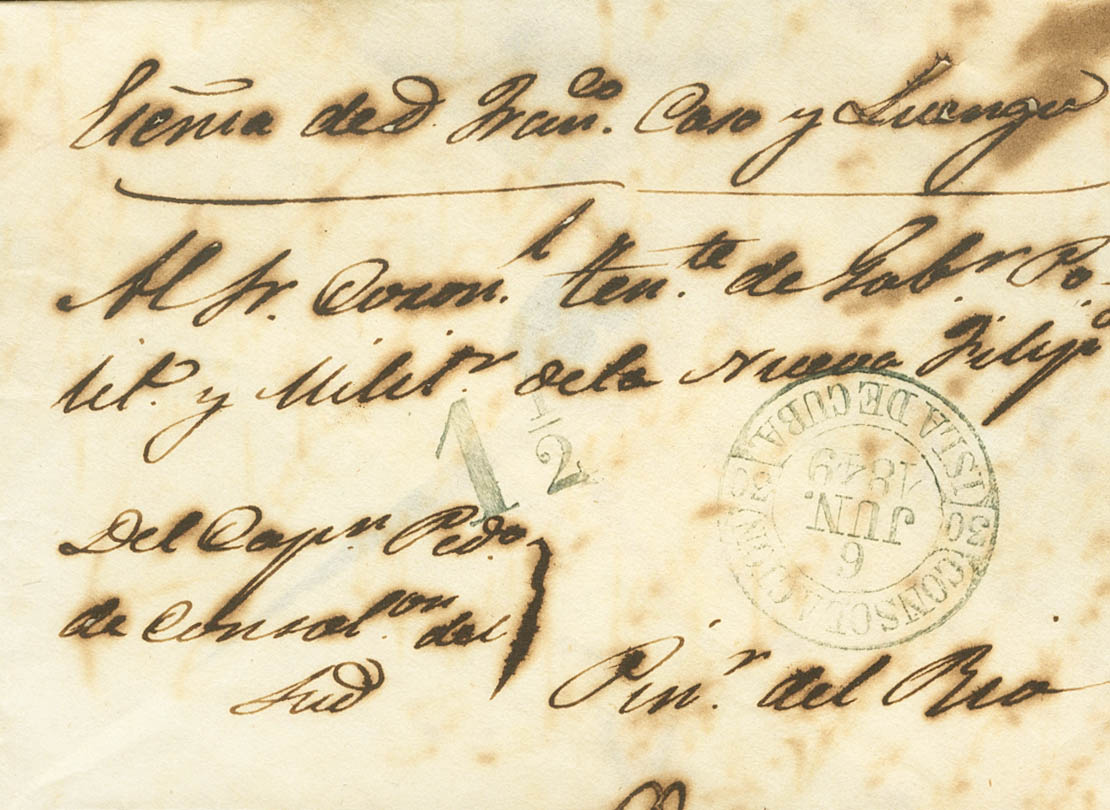 de D. Franco. Caso y Luengo
Al Sr. Coronl. tente. de Gobr. Po-
lit.o y Milit.r dela Nueva Filip
1 1/2
ISLA DE CUBA
CONSOLACION S.
30
6
JUN.
1849
Del Capn. Pedo.
de Consolon. del
Sud
Pinr. del Rio